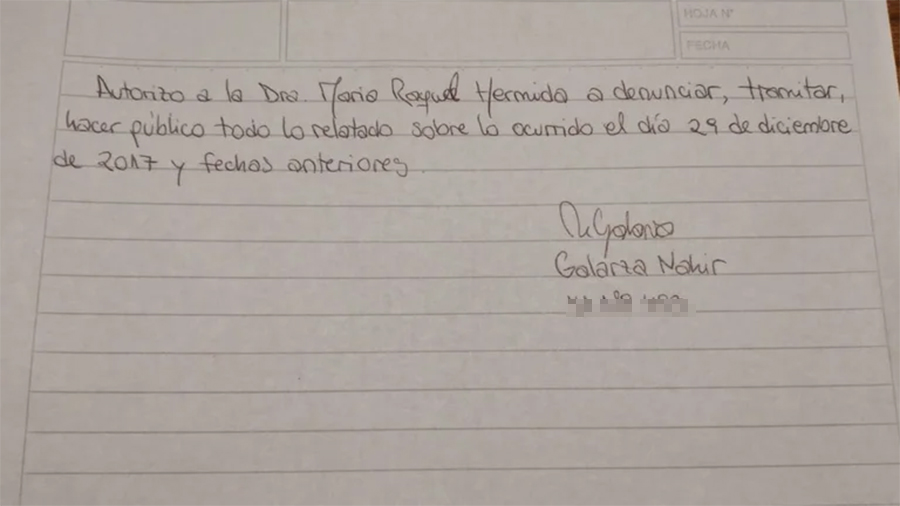 HOJA Nº
FECHA
Autorizo a la Dra. María Raquel Hermida a denunciar, tramitar,
hacer público todo lo relatado sobre lo ocurrido el día 29 de diciembre
de 2017 y fechas anteriores.
Galarza Nahir